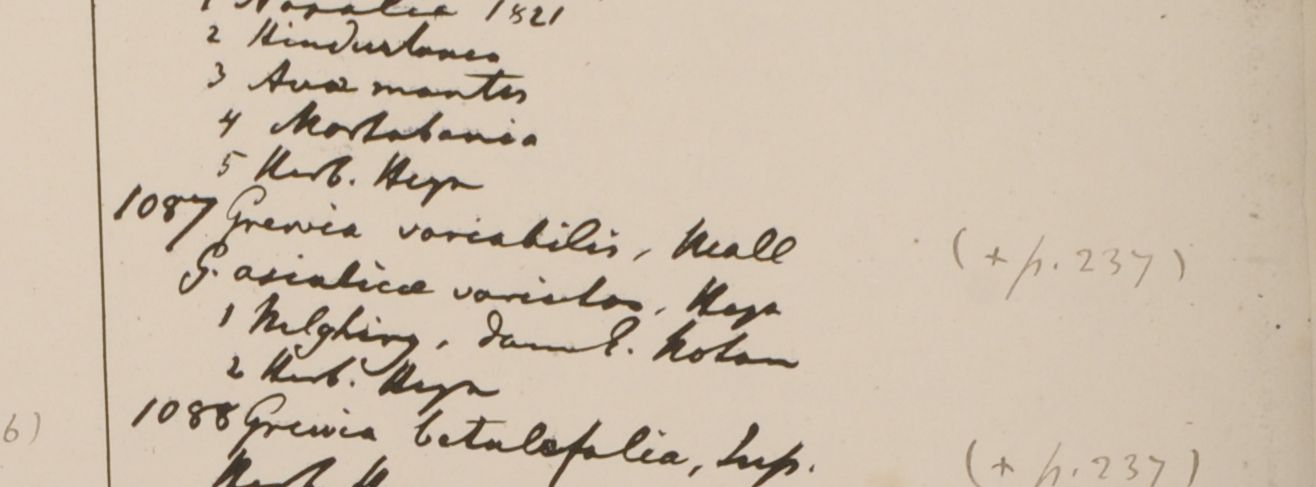 1 Napalia 1821
2 Hindustania
3 Ava montes
4 Martabania
5 Herb. Heyn
1087 Grewia variabilis, Wall (+ p. 237)
G. asiaticæ varietas, Heyn
1 Nilghiry, Noton
2 Herb. Heyn
6) 1088 Grewia betulefolia, Jup. (+ p. 237)
Herb. H